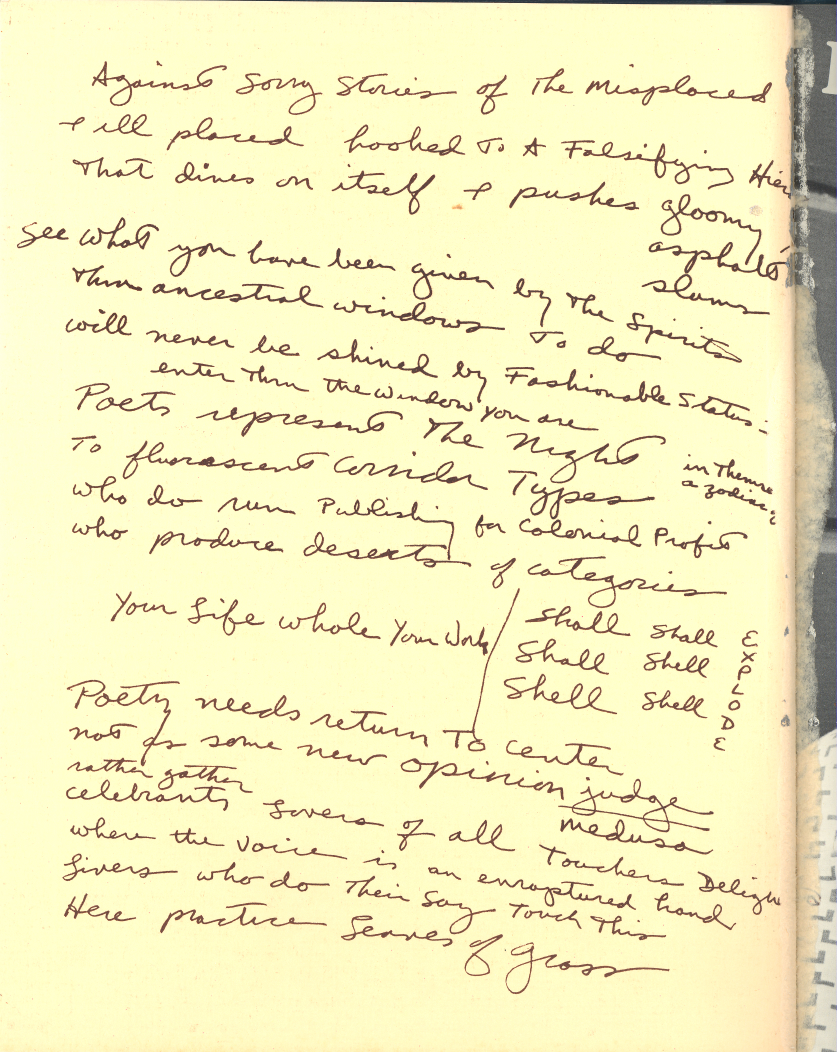 Against Sorry Stories of The Misplaced
& ill placed hooked To A Falsifying
That dines on itself & pushes gloomy
asphalt
slums
See what you have been given by The Spirits
Thru ancestral windows To do
will never be shined by Fashionable Status
enter Thru the window you are
Poets represent The Night
in Themse
a zodiac
To fluorescent Corridor Types
who do run Publishing for Colonial Profit
who produce deserts of categories
Your Life whole Your Work
Shall Shall
Shall Shell
Shell Shell
EXPLODE
Poetry needs return To center
not as some new opinion judge
medusa
rather gather
celebrants Lovers of all Touchers Delight
where the voice is an enraptured hand
Livers who do Their Say Touch This
Here practice Leaves of Grass